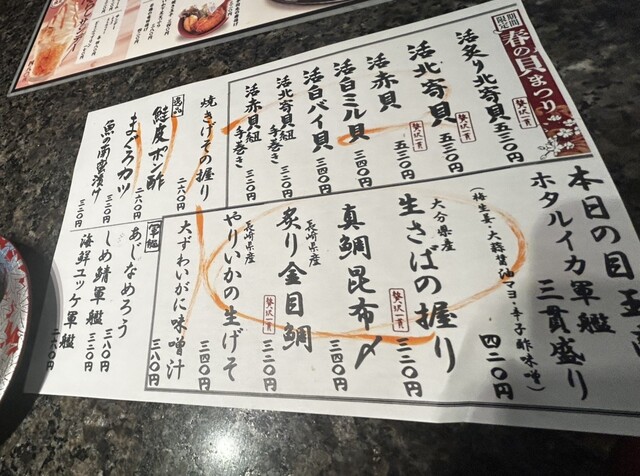 期間限定
春の貝まつり
活炙り北寄貝
贅沢一貫
五三〇円
活北寄貝
贅沢一貫
五三〇円
活赤貝
贅沢一貫
五三〇円
活白ミル貝
三四〇円
活白バイ貝
三四〇円
活北寄貝紐手巻き
三二〇円
活赤貝紐手巻き
三二〇円
焼きげその握り
二六〇円
逸品
鮭皮ポン酢
二六〇円
まぐろカツ
三二〇円
本日の目玉
ホタルイカ軍艦三貫盛り
(梅生姜・大蒜醤油マヨ・辛子酢味噌)
四二〇円
大分県産
生さばの握り
贅沢一貫
三二〇円
真鯛昆布〆
三四〇円
長崎県産
炙り金目鯛
贅沢一貫
三二〇円
長崎県産
やりいかの生げそ
三四〇円
大ずわいがに味噌汁
三八〇円
軍艦
あじなめろう
三八〇円
しめ鯖軍艦
三二〇円
海鮮ユッケ軍艦
二六〇円